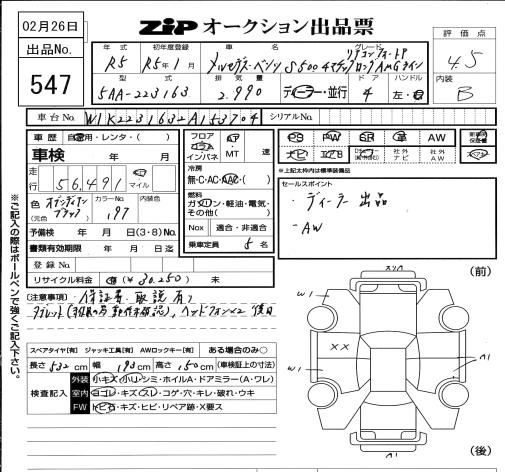 02月26日
ZIP オークション出品票
出品No.
547
年式 R5
初年度登録 R5年1月
車名 メルセデス・ベンツ S500 4マチック ロング AMGライン
グレード リアコンフォートP
評価点 4.5
型式 5AA-223163
排気量 2.990
ディーラー・並行
ドア 4
ハンドル 左・右
内装 B
車台No. W1K2231632A153704
シリアルNo.
車歴 自家用・レンタ・( )
車検 年 月
フロア コラム インパネ
AT・MT 速
PS PW SR 革 AW
ナビ エアB 社外ナビ 社外AW
新車時保証書
※上記太枠内は標準装備品
走行 56,491 マイル
冷房 無・C・AC・AAC・( )
燃料 ガソリン・軽油・電気・その他( )
色(元色) オブシディアンブラック
カラーNo. 197
内装色
予備検 年 月 日(3・8)No.
Nox 適合・非適合
書類有効期限 年 月 日迄
乗車定員 5名
登録No.
リサイクル料金 有(¥30.250) 未
セールスポイント
・ディーラー出品
・AW
(注意事項) 保証書、取説有
ヘッドフォン×2 後日
スペアタイヤ[有] ジャッキ工具[有] AWロックキー[有] ある場合のみ○
長さ 532cm 幅 193cm 高さ 150cm (車検証上の寸法)
検査記入
外装 小キズ・小リ・シミ・ホイルA・ドアミラー(A・ワレ)
室内 ヨゴレ・キズ・スレ・コゲ・穴・キレ・破れ・ウキ
FW トビ石・キズ・ヒビ・リペア跡・X要ス
※ご記入の際はボールペンで強くご記入下さい。
(前)
W1
XX
W1
(後)